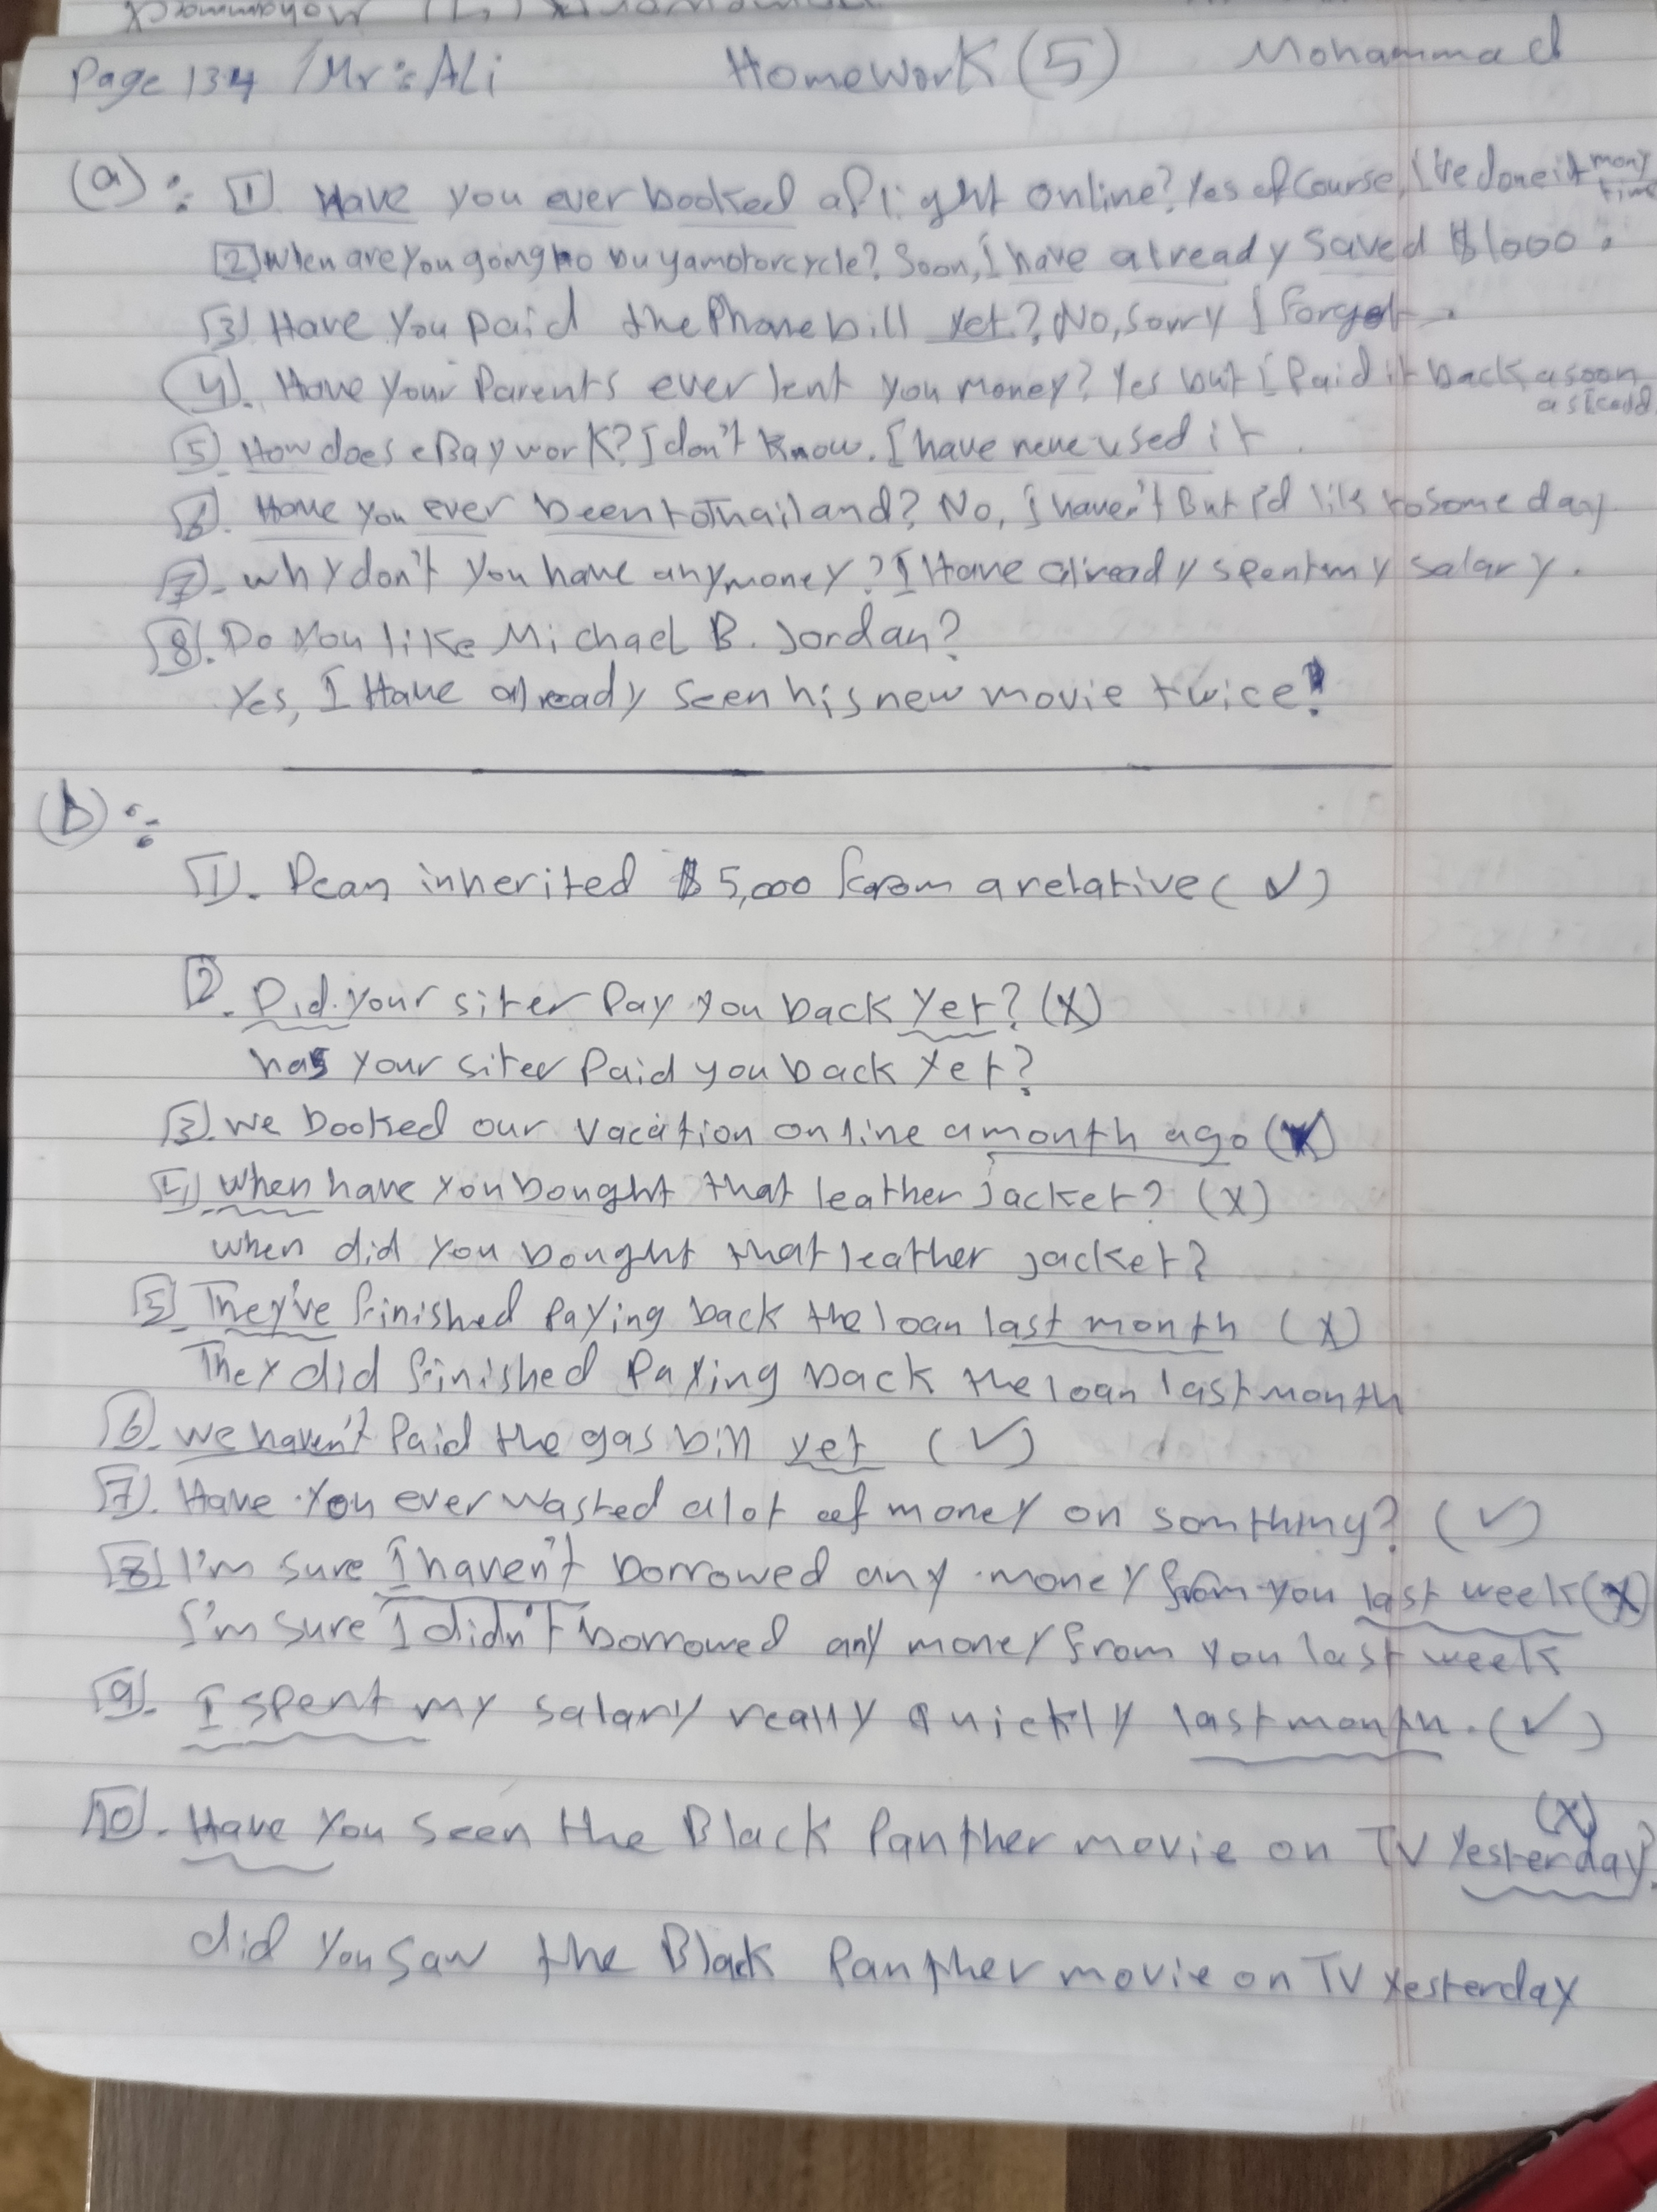 Mohammad
Page 134 / Mr: Ali HomeWork (5) Mohammad
(a): 1 Have you ever booked a flight online? Yes of Course, I've done it many time
2 When are you going to buy a motorcycle? Soon, I have already Saved $1000.
3 Have You paid the Phone bill yet? No, Sorry I Forgot.
4. Have Your Parents ever lent you money? Yes but I Paid it back a soon as I could
5. How does eBay work? I don't know. I have neve used it.
6. Have you ever been to Thailand? No, I haven't But I'd like to some day
7- why don't you have any money? I Have already spent my salary.
8. Do You like Michael B. Jordan?
Yes, I Have already seen his new movie twice!
(b):
1. Dean inherited $5,000 from a relative (✓)
2. Did your siter Pay you back Yet? (X)
has your siter Paid you back Yet?
3. we booked our vacation online a month ago (X)
4) when have you bought that leather jacket? (X)
when did you bought that leather jacket?
5. They've finished Paying back the loan last month (X)
They did finished Paying back the loan last month
6. we haven't Paid the gas bill yet (✓)
7). Have you ever wasted a lot of money on somthing? (✓)
8 I'm sure I haven't borrowed any money from you last week (X)
I'm sure I didn't borrowed any money from you last week
9. I spent my salary really quickly last month. (✓)
10. Have You seen the Black Panther movie on TV Yesterday? (X)
did You saw the Black Panther movie on TV Yesterday